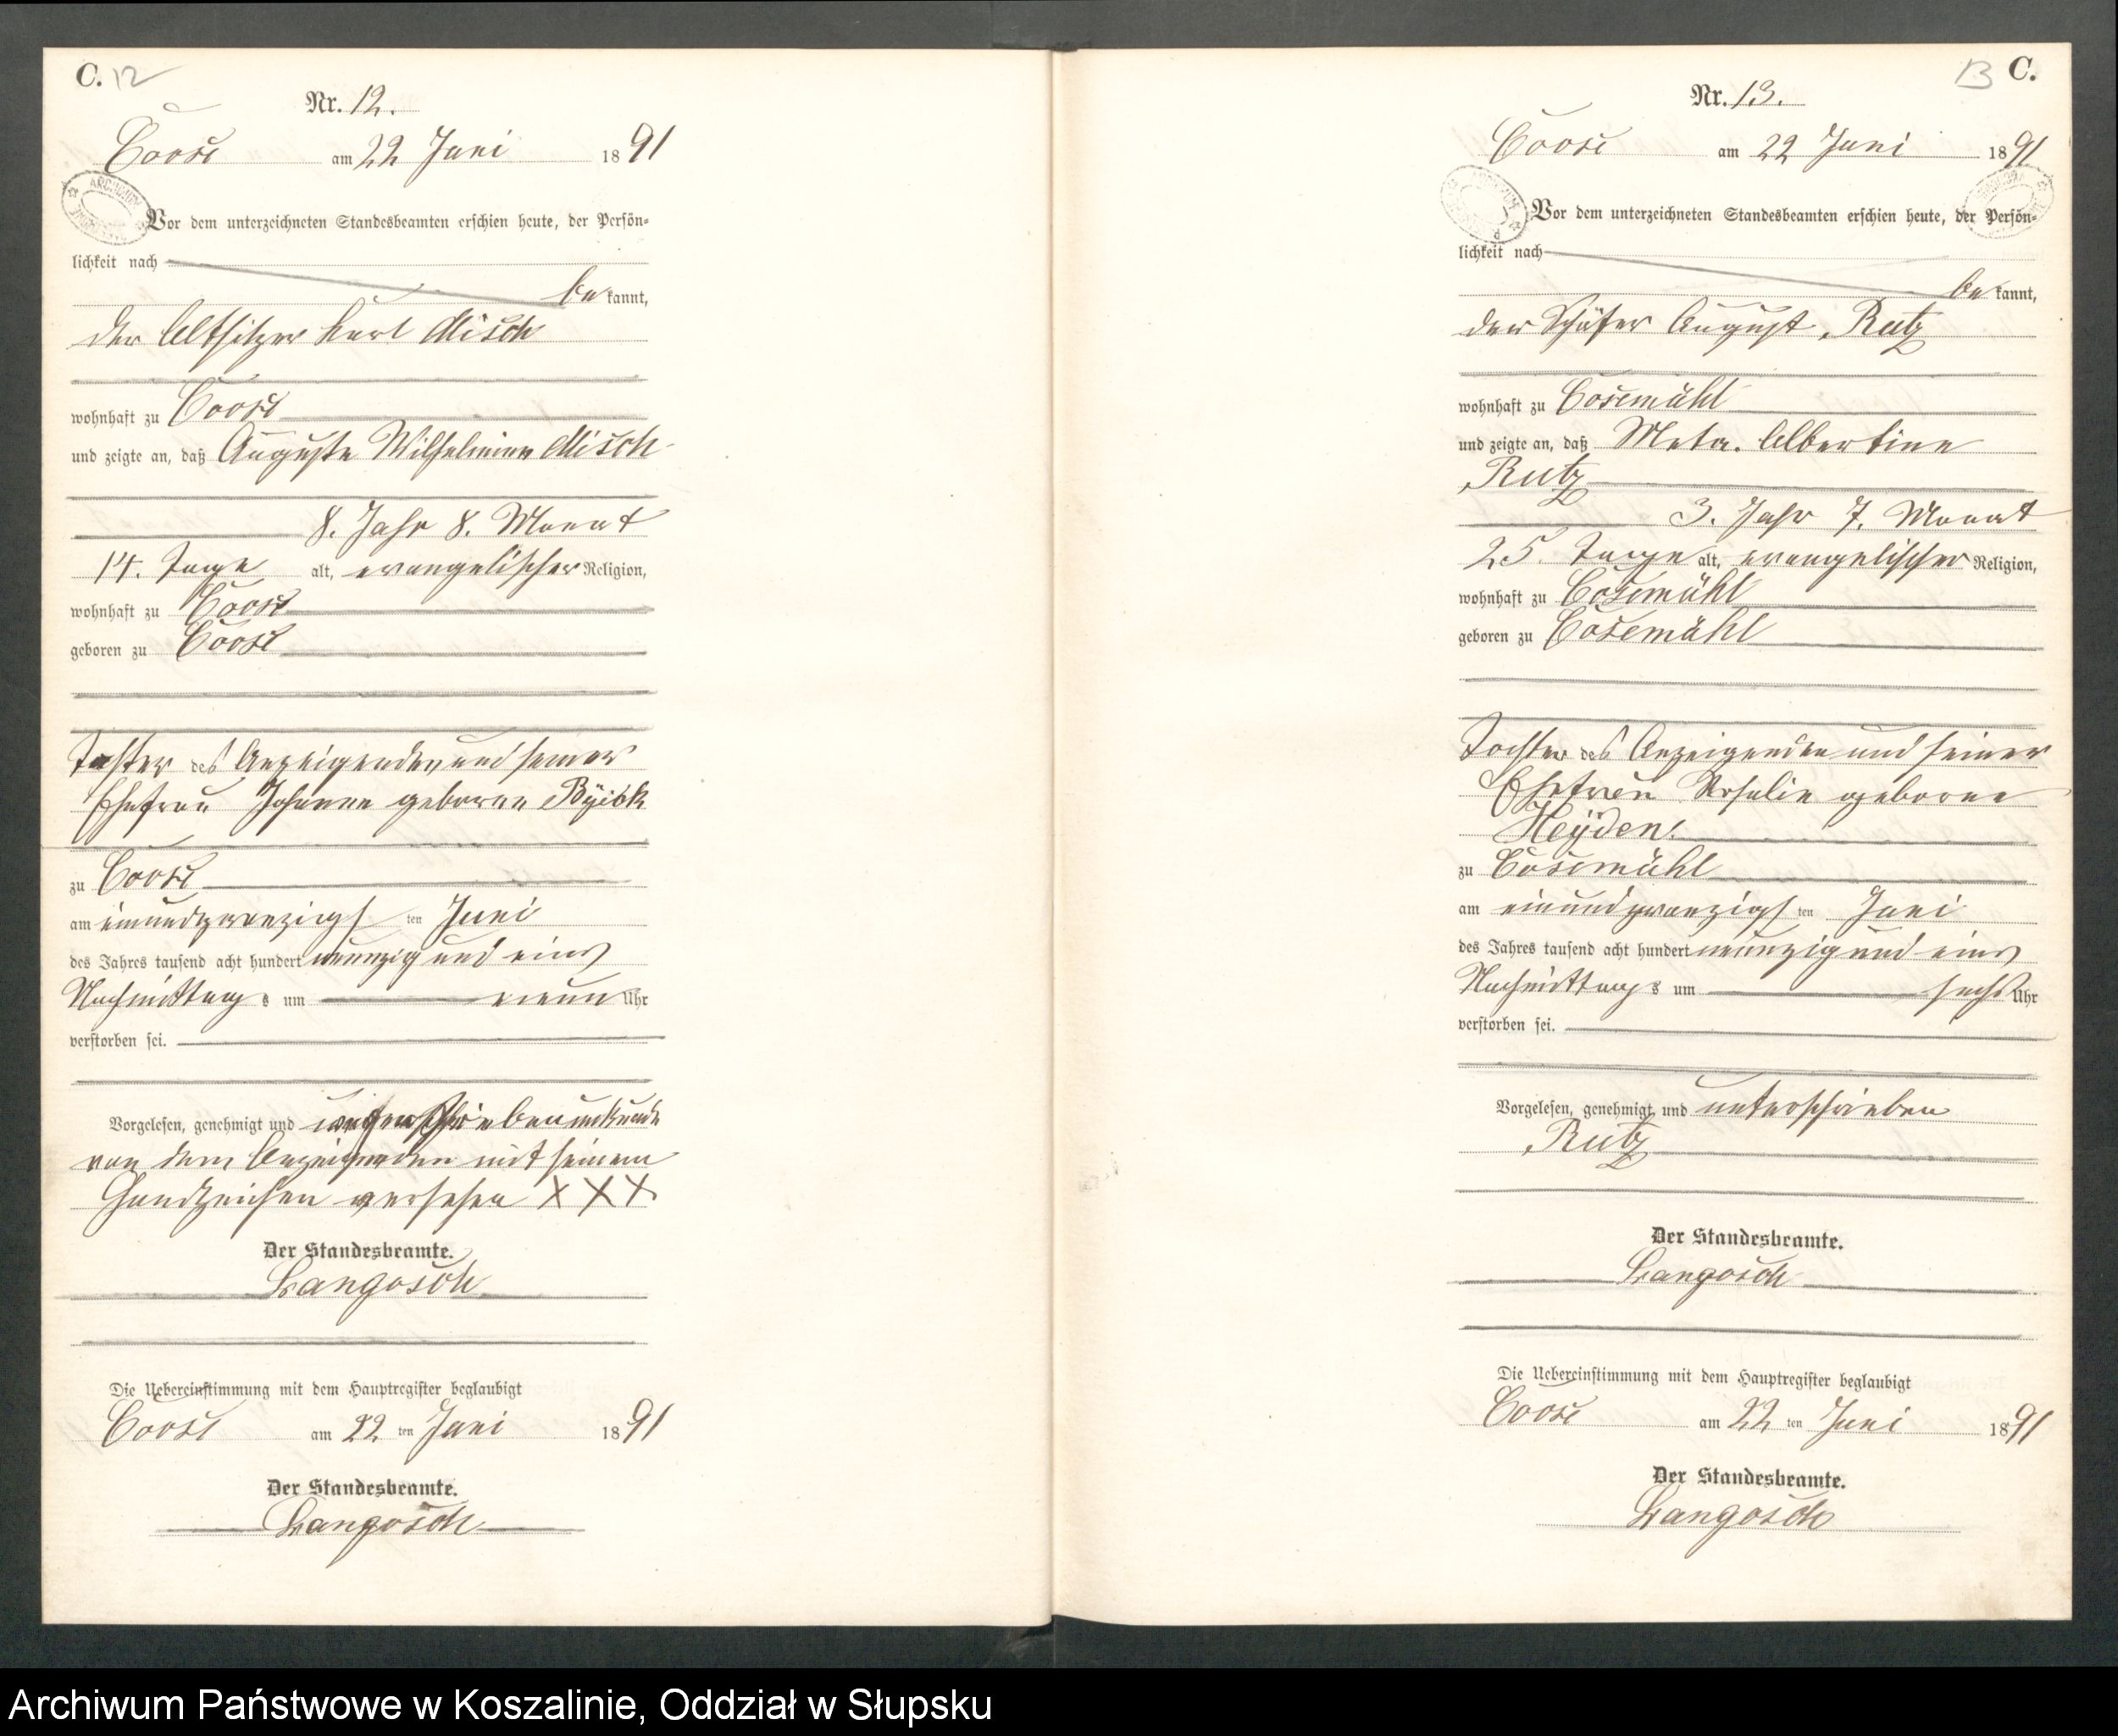 C. 12
Nr. 12.
Coose am 22 Juni 1891
Vor dem unterzeichneten Standesbeamten erschien heute, der Persön-
lichkeit nach
be kannt,
der Altsitzer Karl Misch
wohnhaft zu Coose
und zeigte an, daß Auguste Wilhelmine Misch
8. Jahr 8. Monat
14. Tage alt, evangelischer Religion,
wohnhaft zu Coose
geboren zu Coose
Tochter des Anzeigenden und seiner
Ehefrau Johanne geborne
zu Coose
am einundzwanzigsten Juni
des Jahres tausend acht hundert neunzig und eins
Nachmittags um neun Uhr
verstorben sei.
Vorgelesen, genehmigt und
von dem Anzeigenden mit seinem
Handzeichen versehen XXX
Der Standesbeamte.
Langosch
Die Uebereinstimmung mit dem Hauptregister beglaubigt
Coose am 22 ten Juni 1891
Der Standesbeamte.
Langosch
13 C.
Nr. 13.
Coose am 22 Juni 1891
Vor dem unterzeichneten Standesbeamten erschien heute, der Persön-
lichkeit nach
be kannt,
der Schäfer August Rutz
wohnhaft zu Cosemühl
und zeigte an, daß Meta. Albertine
Rutz
3. Jahr 7. Monat
25. Tage alt, evangelischer Religion,
wohnhaft zu Cosemühl
geboren zu Cosemühl
Tochter des Anzeigenden und seiner
Ehefrau Rosalie geborne
Heÿden.
zu Cosemühl
am einundzwanzigsten Juni
des Jahres tausend acht hundert neunzig und eins
Nachmittags um sechs Uhr
verstorben sei.
Vorgelesen, genehmigt und unterschrieben
Rutz
Der Standesbeamte.
Langosch
Die Uebereinstimmung mit dem Hauptregister beglaubigt
Coose am 22 ten Juni 1891
Der Standesbeamte.
Langosch
Archiwum Państwowe w Koszalinie, Oddział w Słupsku